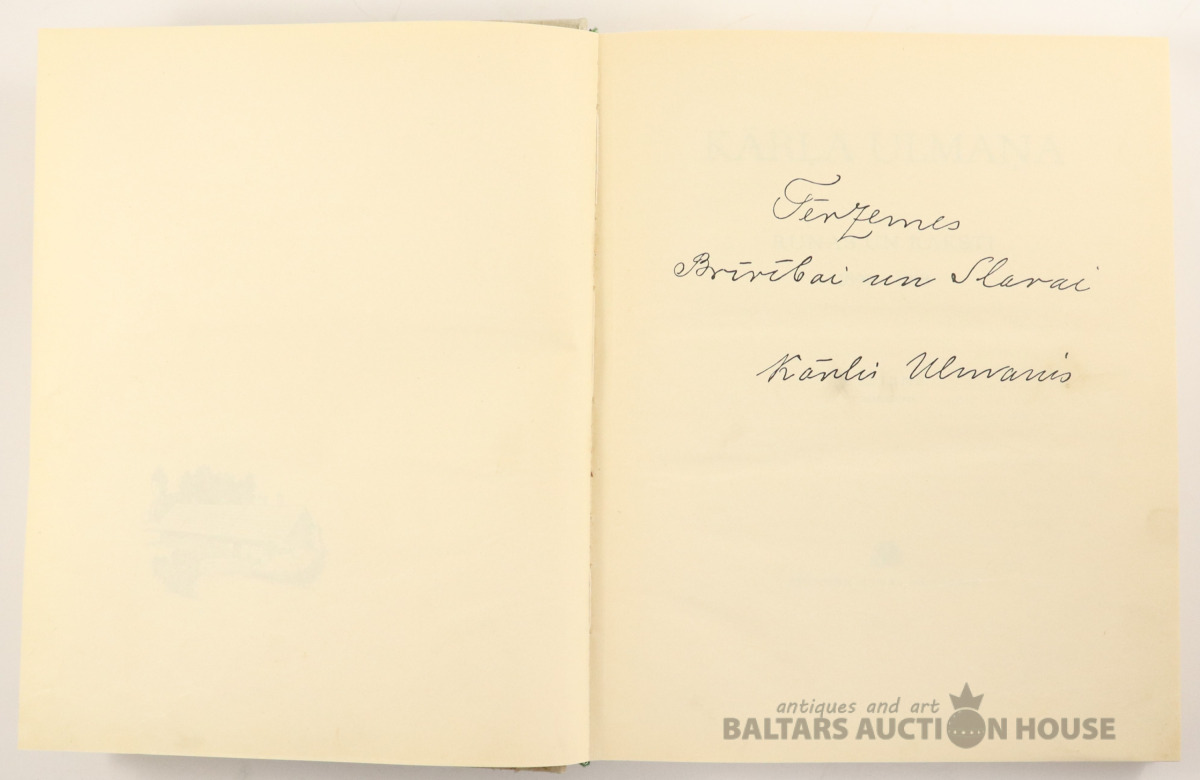 KĀRĻA ULMAŅA
Tēvzemes
Brīvībai un Slavai
Kārlis Ulmanis
antiques and art
BALTARS AUCTION HOUSE